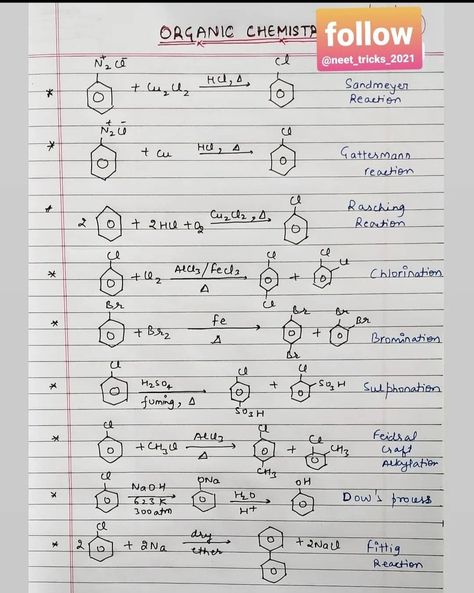 ORGANIC CHEMIST
follow
@neet_tricks_2021
N₂⁺Cl⁻ + Cu₂Cl₂ HCl, Δ Cl Sandmeyer
Reaction
N₂⁺Cl⁻ + Cu HCl, Δ Cl Gattermann
reaction
2 + 2HCl + O₂ Cu₂Cl₂, Δ Cl Rasching
Reaction
Cl + Cl₂ AlCl₃/FeCl₃ Δ Cl Cl + Cl Cl Chlorination
Br + Br₂ Fe Δ Br Br + Br Br Bromination
Cl H₂SO₄ fuming, Δ Cl SO₃H + Cl SO₃H Sulphonation
Cl + CH₃Cl AlCl₃ Δ Cl CH₃ + Cl CH₃ Feidral
Craft
Alkylation
Cl NaOH 623K 300atm ONa H₂O H⁺ OH Dow's process
2 Cl + 2Na dry ether + 2NaCl Fittig
Reaction